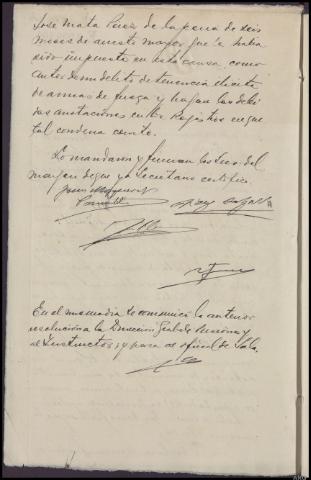 José Mata Pérez de la pena de seis
meses de arresto mayor que le había
sido impuesta en esta causa, como
autor de un delito de tenencia ilícita
de armas de fuego y hagan las debi
das anotaciones en los Registros en que
tal condena conste.
Lo mandaron y firman los Sres. del
margen de que yo Secretario certifico.
En el mismo día se comunicó la anterior
resolución a la Dirección Gral de Prisiones y
al Instructor; y pasa al oficial de Sala.